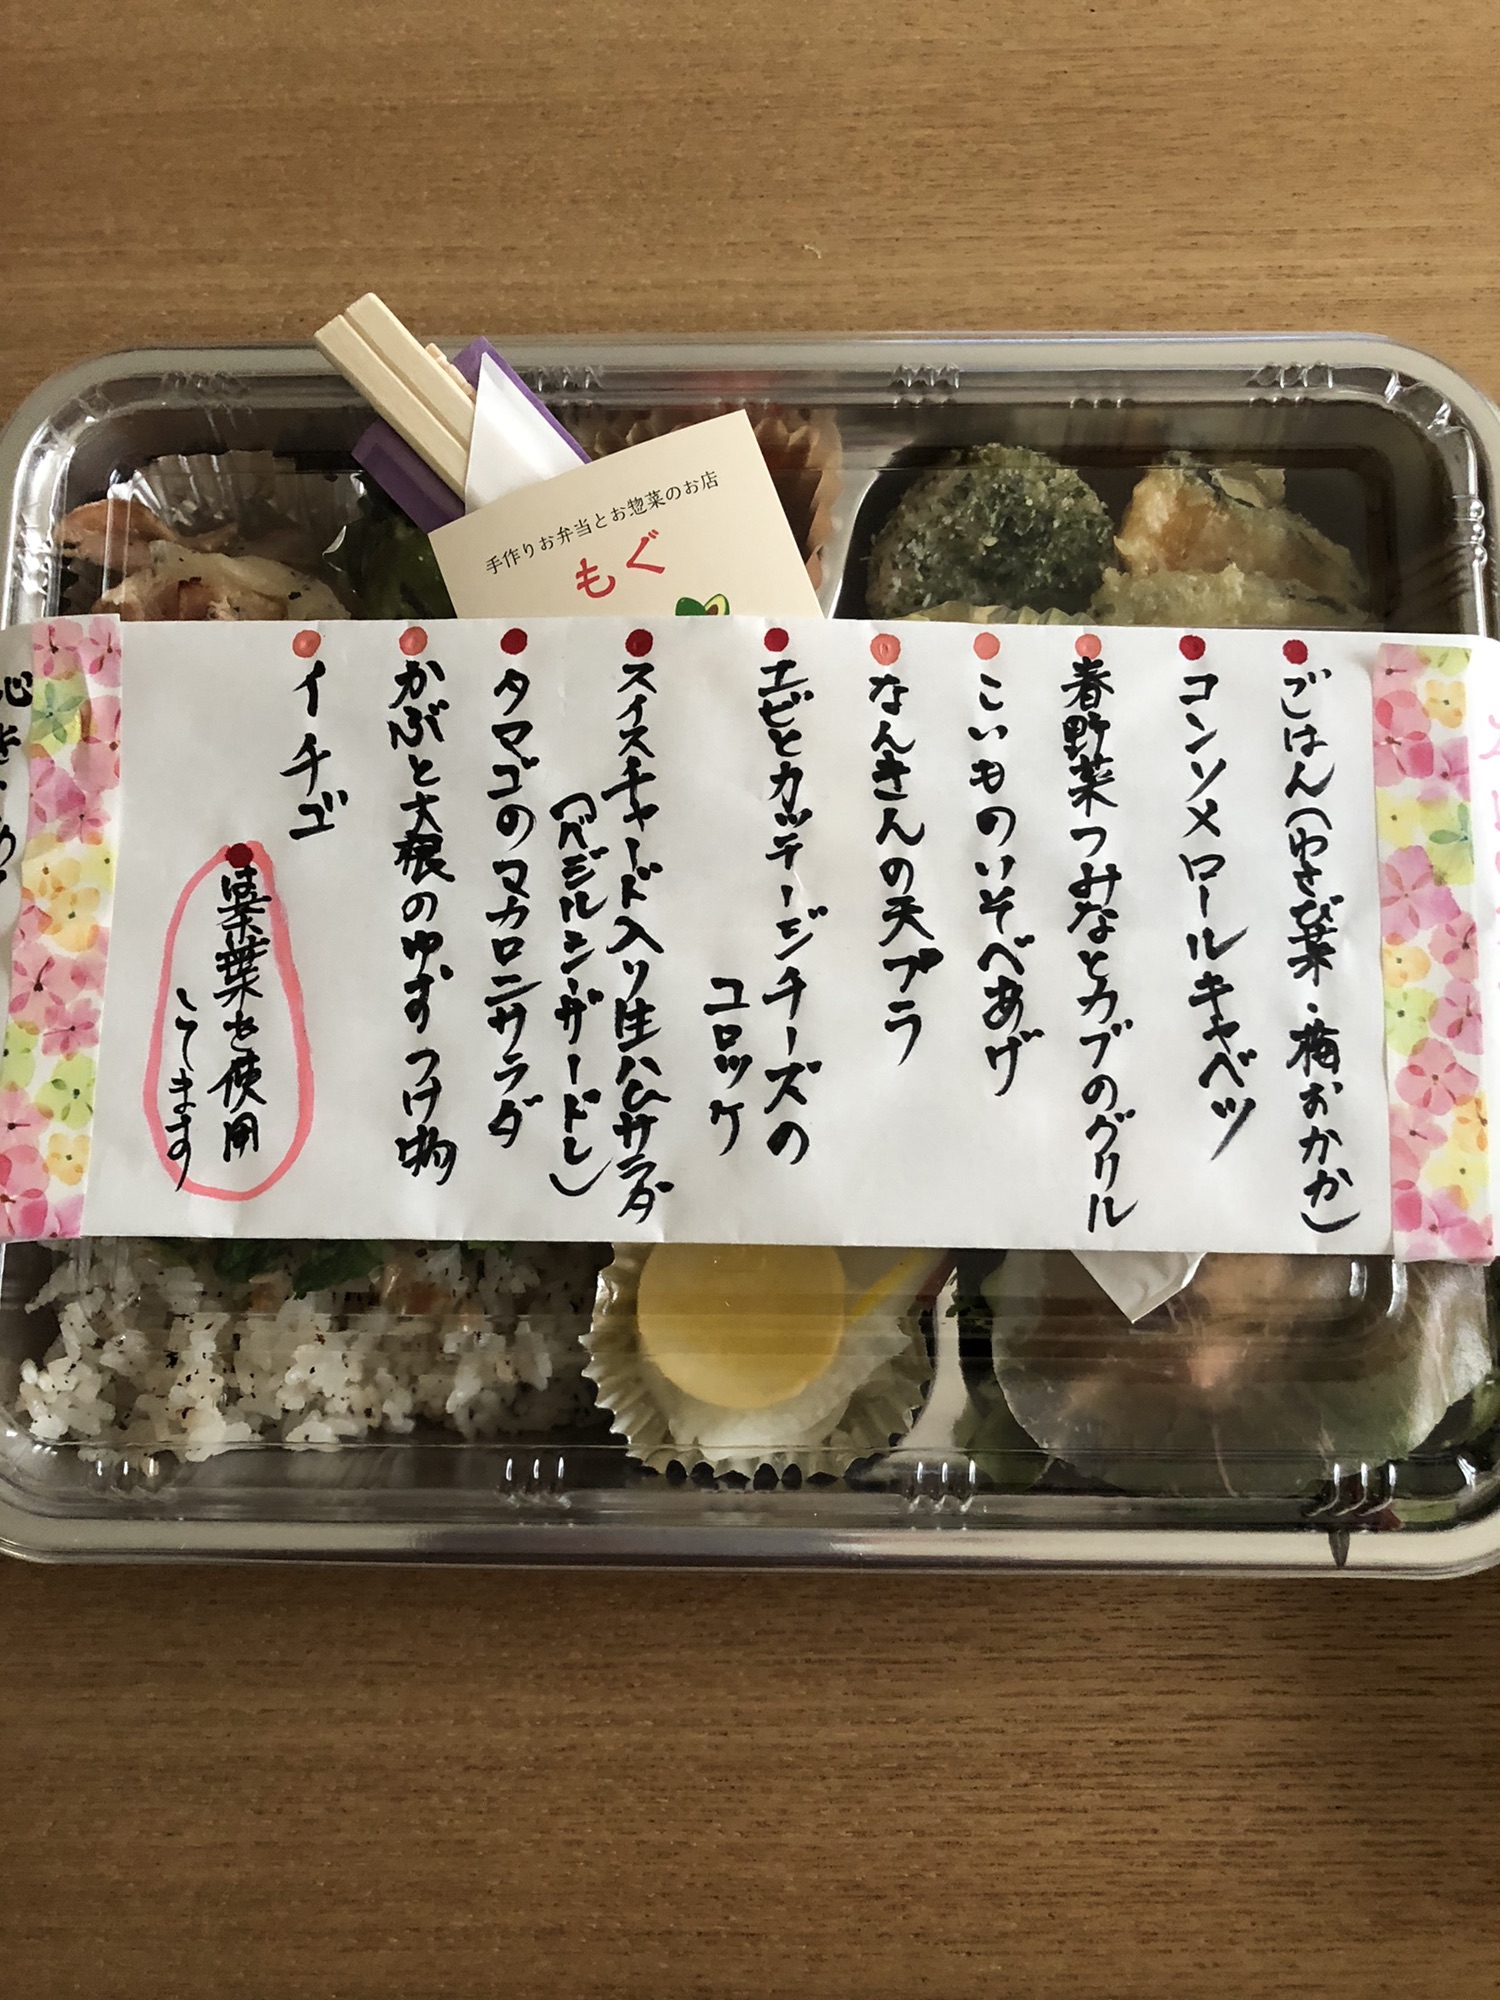 手作りお弁当とお惣菜のお店
もぐ
ごはん(わさび葉・梅おかか)
コンソメロールキャベツ
春野菜つみなとカブのグリル
こいものいそべあげ
なんきんの天プラ
エビとカッテージチーズの
コロッケ
スイスチャード入り生ハムサラダ
(バジルシーザードレ)
タマゴのマカロニサラダ
かぶと大根のゆずつけ物
イチゴ
葉を使用
してます